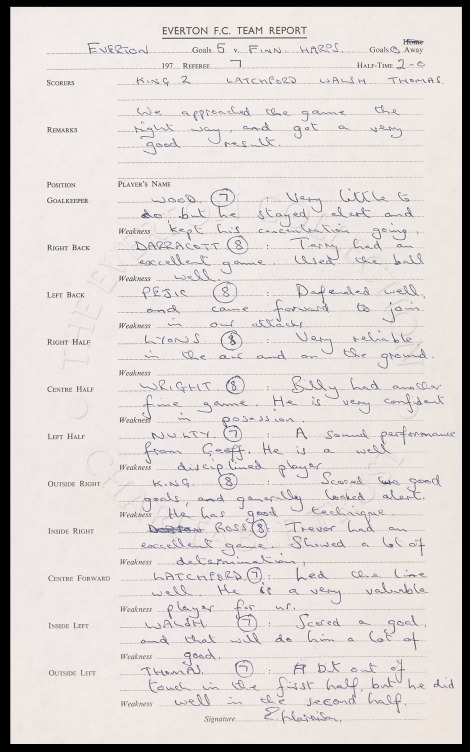 EVERTON F.C. TEAM REPORT
Home
EVERTON Goals 5 v. FINN HARPS. Goals 0 Away
197 REFEREE 7 HALF-TIME 2-0
SCORERS KING 2 LATCHFORD WALSH THOMAS.
We approached the game the
REMARKS right way, and got a very
good result.
POSITION PLAYER'S NAME
GOALKEEPER WOOD. 7 : Very little to
do but he stayed alert and
Weakness kept his concentration going.
RIGHT BACK DARRACOTT 8 : Terry had an
excellent game. Used the ball
Weakness well.
LEFT BACK PEJIC 8 : Defended well,
and came forward to join
Weakness in our attacks
RIGHT HALF LYONS 8 : Very reliable
in the air and on the ground.
Weakness
CENTRE HALF WRIGHT 8 : Billy had another
fine game. He is very confident
Weakness in posession.
LEFT HALF NULTY 7 : A sound performance
from Geoff. He is a well
Weakness disciplined player
OUTSIDE RIGHT KING. 8 : Scored two good
goals, and generally looked alert.
Weakness He has good technique.
INSIDE RIGHT ROSS 8 : Trevor had an
excellent game. Showed a lot of
Weakness determination.
CENTRE FORWARD LATCHFORD. 7 : Led the line
well. He is a very valuable
Weakness player for us.
INSIDE LEFT WALSH 7 : Scored a goal,
and that will do him a lot of
Weakness good.
OUTSIDE LEFT THOMAS. 7 : A bit out of
touch in the first half, but he did
Weakness well in the second half.
Signature